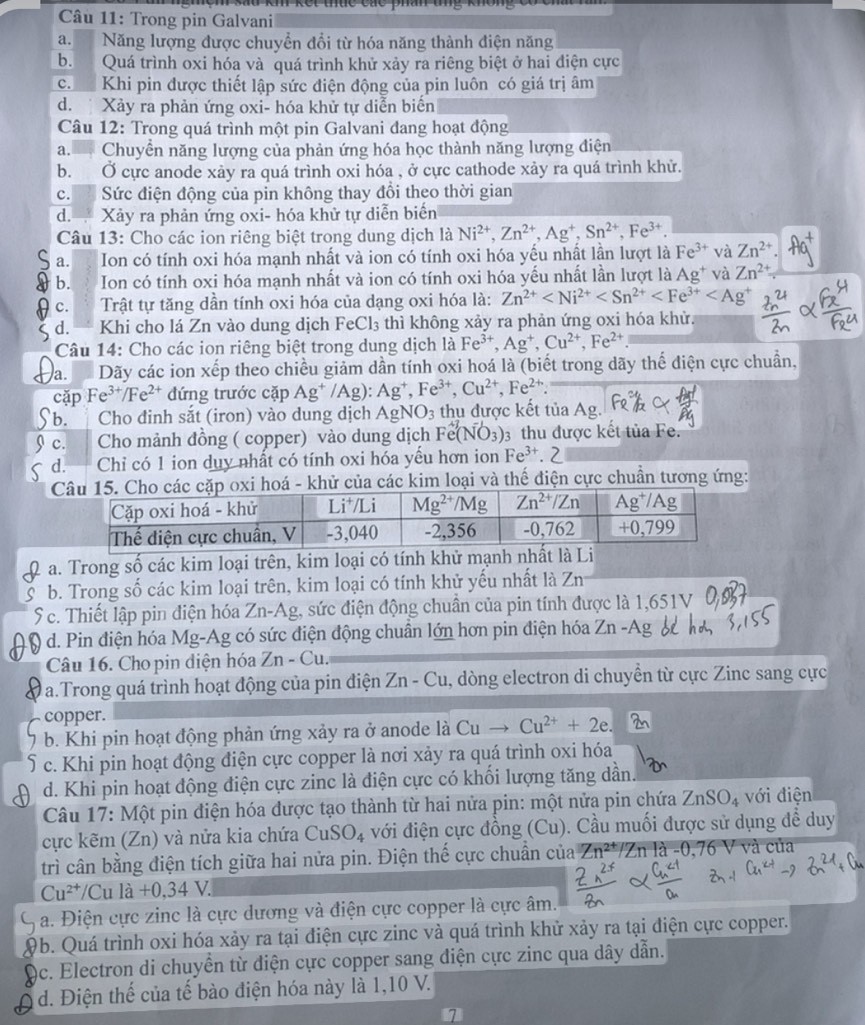 Câu 11: Trong pin Galvani
a. Năng lượng được chuyển đổi từ hóa năng thành điện năng
b. Quá trình oxi hóa và quá trình khử xảy ra riêng biệt ở hai điện cực
c. Khi pin được thiết lập sức điện động của pin luôn có giá trị âm
d. Xảy ra phản ứng oxi- hóa khử tự diễn biến
Câu 12: Trong quá trình một pin Galvani đang hoạt động
a. Chuyển năng lượng của phản ứng hóa học thành năng lượng điện
b. Ở cực anode xảy ra quá trình oxi hóa , ở cực cathode xảy ra quá trình khử.
c. Sức điện động của pin không thay đổi theo thời gian
d. Xảy ra phản ứng oxi- hóa khử tự diễn biến
Câu 13: Cho các ion riêng biệt trong dung dịch là Ni²⁺, Zn²⁺, Ag⁺, Sn²⁺, Fe³⁺.
S a. Ion có tính oxi hóa mạnh nhất và ion có tính oxi hóa yếu nhất lần lượt là Fe³⁺ và Zn²⁺. Ag⁺
Đ b. Ion có tính oxi hóa mạnh nhất và ion có tính oxi hóa yếu nhất lần lượt là Ag⁺ và Zn²⁺.
Đ c. Trật tự tăng dần tính oxi hóa của dạng oxi hóa là: Zn²⁺ < Ni²⁺ < Sn²⁺ < Fe³⁺ < Ag⁺
S d. Khi cho lá Zn vào dung dịch FeCl₃ thì không xảy ra phản ứng oxi hóa khử.
Câu 14: Cho các ion riêng biệt trong dung dịch là Fe³⁺, Ag⁺, Cu²⁺, Fe²⁺.
Đ a. Dãy các ion xếp theo chiều giảm dần tính oxi hoá là (biết trong dãy thế điện cực chuẩn,
cặp Fe³⁺/Fe²⁺ đứng trước cặp Ag⁺ /Ag): Ag⁺, Fe³⁺, Cu²⁺, Fe²⁺.
S b. Cho đinh sắt (iron) vào dung dịch AgNO₃ thu được kết tủa Ag.
S c. Cho mảnh đồng ( copper) vào dung dịch Fe(NO₃)₃ thu được kết tủa Fe.
S d. Chỉ có 1 ion duy nhất có tính oxi hóa yếu hơn ion Fe³⁺. 2
Câu 15. Cho các cặp oxi hoá - khử của các kim loại và thế điện cực chuẩn tương ứng:
Cặp oxi hoá - khử Li⁺/Li Mg²⁺/Mg Zn²⁺/Zn Ag⁺/Ag
Thế điện cực chuẩn, V -3,040 -2,356 -0,762 +0,799
Đ a. Trong số các kim loại trên, kim loại có tính khử mạnh nhất là Li
S b. Trong số các kim loại trên, kim loại có tính khử yếu nhất là Zn
S c. Thiết lập pin điện hóa Zn-Ag, sức điện động chuẩn của pin tính được là 1,651V 0,037
Đ d. Pin điện hóa Mg-Ag có sức điện động chuẩn lớn hơn pin điện hóa Zn -Ag 3,155
Câu 16. Cho pin điện hóa Zn - Cu.
Đ a.Trong quá trình hoạt động của pin điện Zn - Cu, dòng electron di chuyển từ cực Zinc sang cực
copper.
S b. Khi pin hoạt động phản ứng xảy ra ở anode là Cu → Cu²⁺ + 2e. Zn
S c. Khi pin hoạt động điện cực copper là nơi xảy ra quá trình oxi hóa Zn
Đ d. Khi pin hoạt động điện cực zinc là điện cực có khối lượng tăng dần.
Câu 17: Một pin điện hóa được tạo thành từ hai nửa pin: một nửa pin chứa ZnSO₄ với điện
cực kẽm (Zn) và nửa kia chứa CuSO₄ với điện cực đồng (Cu). Cầu muối được sử dụng để duy
trì cân bằng điện tích giữa hai nửa pin. Điện thế cực chuẩn của Zn²⁺/Zn là -0,76 V và của
Cu²⁺/Cu là +0,34 V.
S a. Điện cực zinc là cực dương và điện cực copper là cực âm.
Đ b. Quá trình oxi hóa xảy ra tại điện cực zinc và quá trình khử xảy ra tại điện cực copper.
Đ c. Electron di chuyển từ điện cực copper sang điện cực zinc qua dây dẫn.
Đ d. Điện thế của tế bào điện hóa này là 1,10 V.
7